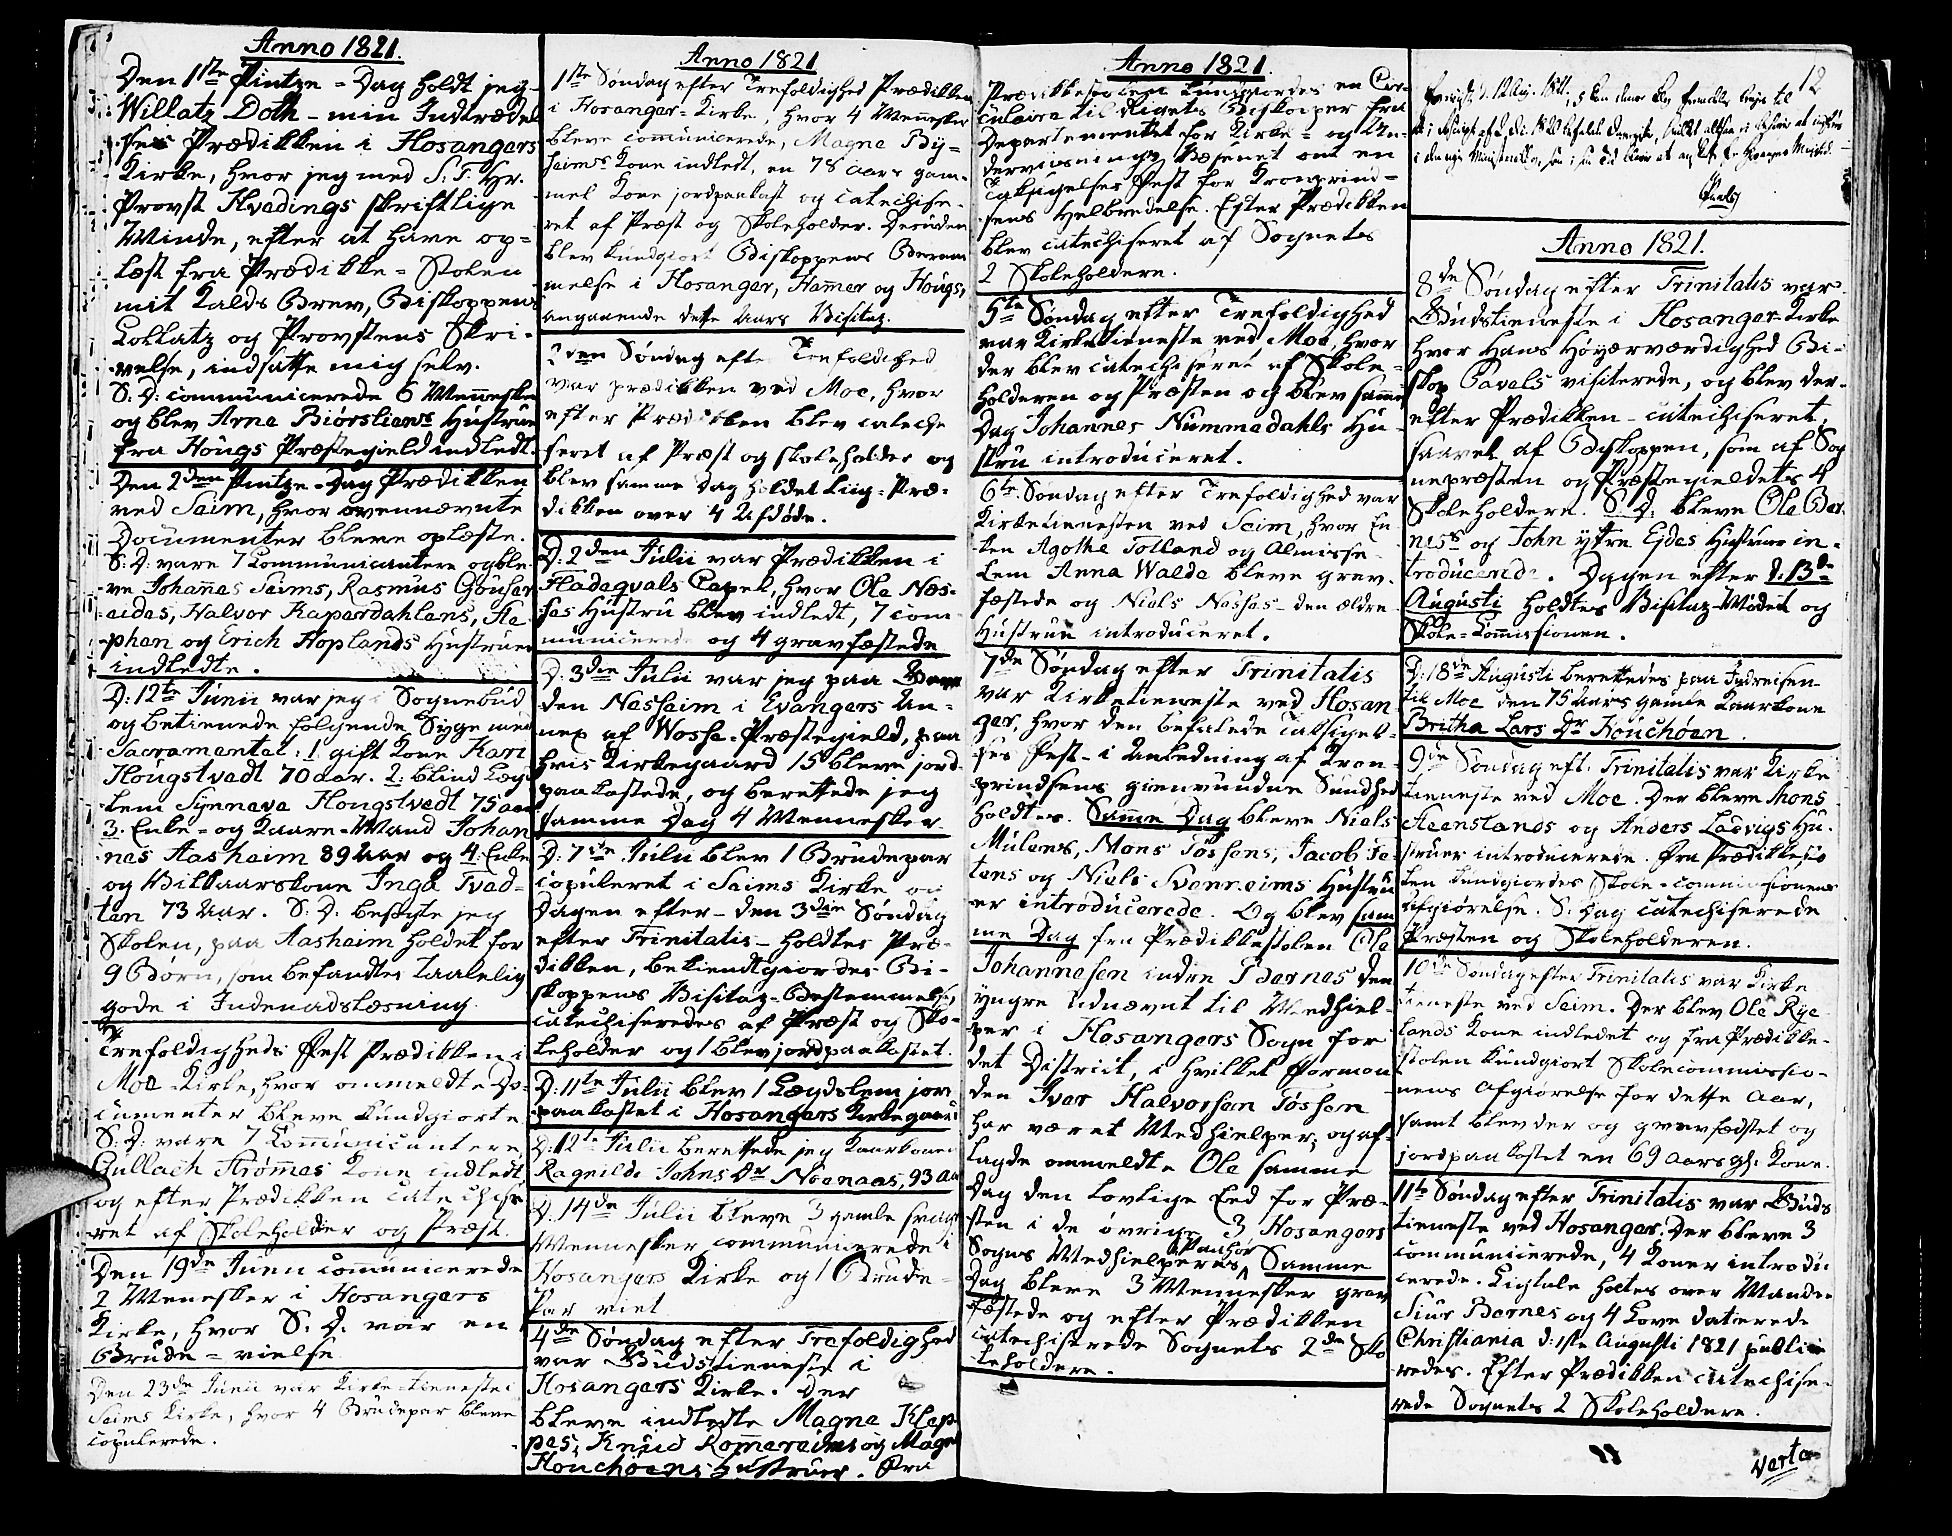 Anno 1821.
Den 1ste Pintze-Dag holdt jeg
Willatz Doth - min Indtrædel
ses Prædikken i Hosangers
Kirke, hvor jeg med S. T. Hr.
Provst Hvadings skriftlige
Minde, efter at have op=
læst fra Prædikke=Stolen
mit Kalds Brev, Biskoppens
Collatz og Provstens Skri-
velse, indsatte mig selv.
S. D: communicerede 6 Menneske
og blev Arne Biørsliens Hustrue
fra Hougs Præstegield indledt.
Den 2den Pintze=Dag Prædikken
ved Saim, hvor ovennævnte
Documenter bleve oplæste.
S: D: vare 7 Communicantere og ble
ve Johanes Seims, Rasmus
eides, Halvor Kapardahlens, Ste
phan og Erich Hoplands Hustruer
indledte.
D: 12te Junii var jeg i Sognebud
og betienede følgende Syge med
Sacramentet: 1. gift Kone Kari
Hougstvedt 70 aar. 2: blind Læg
lem Synneva Hougstvedt 75 aar
3. Enke=og Kaare=Mand Johan
nes Aasheim 89 Aar og 4. Enke
og Vilkaarskone Inga Tved=
ten 73 Aar. S: D: besøgte jeg
Skolen, paa Aasheim holdet for
9 Børn, som befandtes taalelig
gode i Indenadslæsning.
Trefoldigheds Fest Prædikken i
Moe-Kirke, hvor ommeldte Do=
cumenter bleve kundgiorte
S: D: vare 7 Communicantere,
Gullach Strømmes Kone indledt
og efter Prædikken catechise
ret af Skoleholder og Præst.
Den 19de Junii communicerede
2 Menesker i Hosangers
Kirke, hvor S: D: var en
Brude=vielse
Den 23de Junii var Kirke=tieneste i
Seims Kirke, hvor 4 Brudepar bleve
copulerede.
Anno 1821
1ste Søndag efter Trefoldighed Prædikken
i Hosanger=Kirke, hvor 4 Mennesker
bleve communicerede, Magne By=
heims Kone indledt, en 78 Aars gam-
mel Kone jordpaakast og catechise-
ret af Præst og Skoleholder. Desuden
blev kundgiort Biskoppens Beram
melse i Hosanger, Hamer og Hougs,
angaaende dette Aars Visitaz.
2den Søndag efter Trefoldighed
var prædikken ved Moe, hvor
efter Prædikken blev cateche
seret af Præst og skoleholder og
blev samme Dag holdet Liig=Præ-
dikken over 4 Afdøde.
D. 2den Julii var Prædikken i
Fladeqvals Capel, hvor Ole Næs-
ses Hustru blev indledt, 7 com=
municerede og 4 gravfæstede
D. 3die Julii var jeg paa
den Nesheim i Evangers An-
nex af Wosse-Præstegield, paa
hvis Kirkegaard 15 bleve jord
paakastede, og berettede jeg
samme Dag 4 Mennesker.
D: 7de Julii blev 1 Brudepar
copuleret i Saims Kirke og
Dagen efter - den 3die Søndag
efter Trinitatis - holdtes Præ-
dikken, bekiendtgiordes Bi-
skoppens Visitaz-Bestemmelse,
catechiseredes af Præst og Sko-
leholder og 1 blev jordpaakastet.
D: 11te Julii blev 1 Lægdslem jor
paakastet i Hosangers Kirkegaard
D: 12te Julii berettede jeg Kaarkone
Ragnilde Johns Dr Noonaas, 93 Aar
D. 14de Julii bleve 3 gamle svage
Mennesker communicerede i
Hosangers Kirke og 1 Brude-
Par viet
4de Søndag efter Trefoldighed
var Budstieneste i
Hosangers Kirke. Der
bleve indledte Magne Klep
pes, Knud Romereides og Magne
Houchøens Hustruer. Fra
Anno 1821.
Prædikkestolen kundgiordes en Cir-
culaire til Rigets Biskoper fra
Departementet for Kirke= og Un-
derviisnings Væsenet om en
Taksigelses Fest for Kronprind=
sens Helbredelse. Efter Prædikken
blev catechiseret af Sognets
2 Skoleholdere.
5te Søndag efter Trefoldighed
var Kirketieneste ved Moe, hvor
der blev catechiseret af Skole=
holderen og Præsten og blev samme
Dag Johannes Nummedahls Hu-
stru introduceret.
6te Søndag efter Trefoldighed var
Kirketienesten ved Seim, hvor En
ken Agothe Tolland og Almisse-
Lem Anna Walde bleve grav-
fæstede og Niels Nesses - den ældre
Hustrue introduceret.
7de Søndag efter Trinitatis
var Kirketieneste ved Hosan
ger, hvor den befalede Taksigel-
ses Fest - i Anledning af Kron-
prindsens gienvundne Sundhed
holdtes. Samme Dag bleve Niels
Mulens, Mons Tøssens, Jacob Te
tens og Niels Svenheims Hustru
er introducerede. Og blev sam
me Dag fra Prædikkestolen Ole
Johannesen indre Bernes den
yngre udnævnt til Medhiel-
per i Hosangers Sogn for
det District, i hvilket Forman
den Iver Halvorsen Tøssen
har været Medhielper, og af-
lagde ommeldte Ole samme
Dag den lovlige Eed for Præ-
sten i de øvrige 3 Hosangers
Sogns Medhielperes Paahør Samme
Dag bleve 3 Mennesker grav
fæstede og efter Prædikken
catechiserede Sognets 2de Sko
leholdere.
12
Anno 1821.
8de Søndag efter Trinitatis var
Budstieneste i Hosanger-Kirke
hvor Hans Høyærværdighed Bi-
skop Pavels visiterede, og blev der-
efter Prædikken - catechiseret,
saavel af Biskoppen, som af Sog
nepræsten og Præstegieldets 4
Skoleholdere. S: D: bleve Ole Ber
ness og John ytre Ejdes Hustruer in-
troducerede. Dagen efter d: 13de
Augusti holdtes Visitaz-Mødet og
Skole=Commissionen.
D: 18de Augusti berettedes paa Indreisen
til Moe den 75 Aars gamle Kaarkone
Britha Lars Dr Houchøen.
9de Søndag eft. Trinitatis var Kirke
tieneste ved Moe. Der bleve Mons
Steenslands og Anders Ladvigs Hu-
struer introducerede. Fra Prædikkesto
len kundgiordes Skole=commissionens
Afgiørelse. S: Dag catechiserede
Præsten og Skoleholderen.
10de Søndag efter Trinitatis var Kirke
tieneste ved Seim. Der blev Ole Rye
lands Kone indledet og fra Prædikke-
stolen kundgiort Skolecommissio-
nens Afgiørelse for dette Aar,
samt blev der og gravfæstet og
jordpaakastet en 69 aars gl: Kone.
11te Søndag efter Trinitatis var Buds
tieneste ved Hosanger. Der bleve 3
communicerede, 4 Koner introdu
cerede. Ligtale holtes over Mande
Siur Bernes og 4 Love daterede
Christiania d: 1ste Augusti 1821 publice
redes. Efter Prædikken catechise-
rede Sognets 2 Skoleholdere.
verte